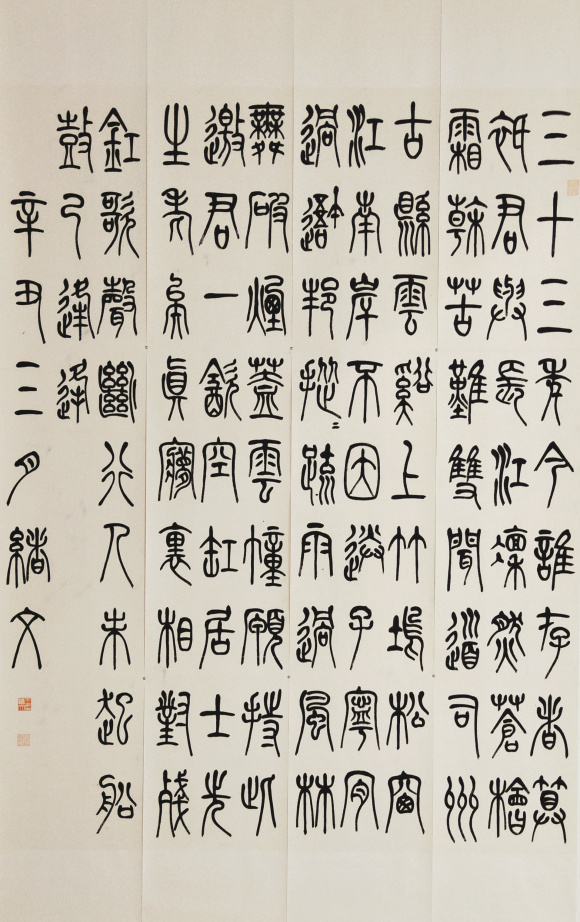 三十三年今誰存者算
衹君與長江凜然蒼檜
霜榦苦難雙聞道司州
古縣雲谿上竹塢松窗
江南岸不因送子寧肎
過吾邦摐〻疏雨過風林
舞破煙蓋雲幢願持此
邀君一飲空缸居士先
生老矣真夢裏相對殘
釭歌聲斷行人未起船
鼓已逢逢
辛丑三月緒文